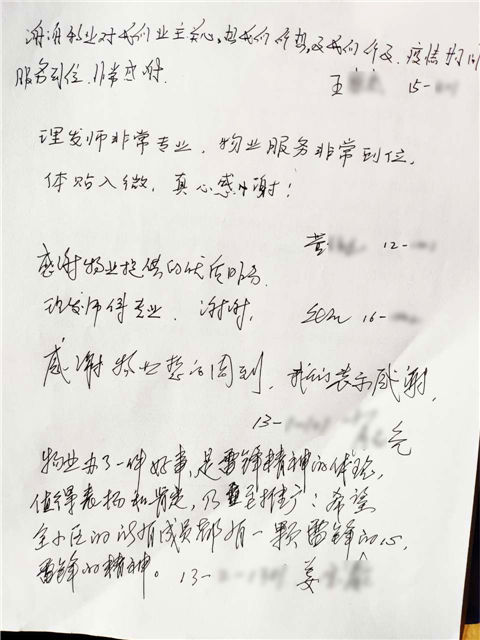 谢谢物业对我们业主关心,想我们所想,及我们所及.疫情期间
服务到位.非常感谢.
王 15-
理发师非常专业.物业服务非常到位,
体贴入微,真心感谢!
黄 12-
感谢物业提供的优质服务.
理发师很专业.谢谢,
16-
感谢物业想的周到,我们表示感谢,
13-
物业办了一件好事,是雷锋精神的体现,
值得表扬和肯定,乃至推广;希望
全小区的所有成员都有一颗雷锋的心,
雷锋的精神。13- 姜